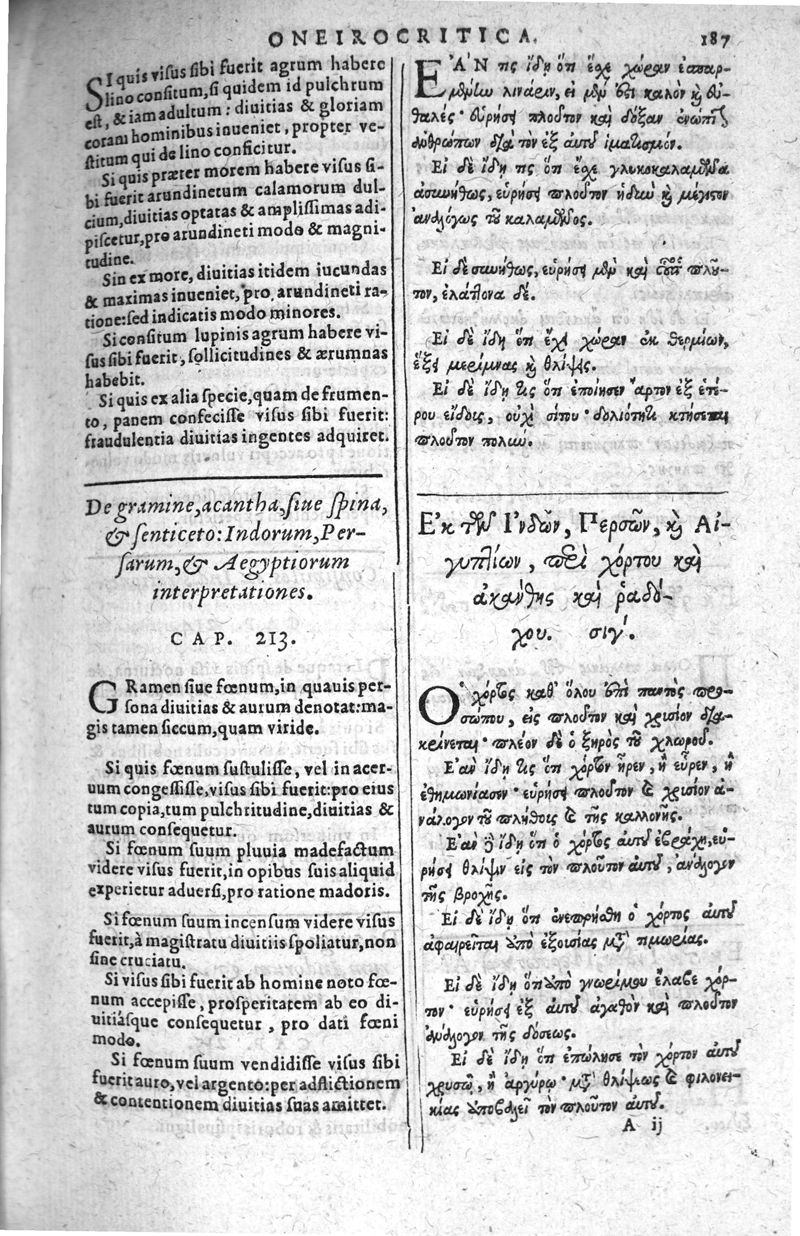 ONEIROCRITICA. 187
SI quis visus sibi fuerit agrum habere
lino consitum, si quidem id pulchrum
est, & iam adultum: diuitias & gloriam
coram hominibus inueniet, propter ve-
stitum qui de lino conficitur.
Si quis præter morem habere visus si-
bi fuerit arundinetum calamorum dul-
cium, diuitias optatas & amplissimas adi-
piscetur, pro arundineti modo & magni-
tudine.
Sin ex more, diuitias itidem iucundas
& maximas inueniet, pro arundineti ra-
tione: sed indicatis modo minores.
Si consitum lupinis agrum habere vi-
sus sibi fuerit, sollicitudines & ærumnas
habebit.
Si quis ex alia specie, quam de frumen-
to, panem confecisse visus sibi fuerit:
fraudulentia diuitias ingentes adquiret.
De gramine, acantha, siue spina,
& senticeto: Indorum, Per-
sarum, & Aegyptiorum
interpretationes.
CAP. 213.
GRamen siue fœnum, in quauis per-
sona diuitias & aurum denotat: ma-
gis tamen siccum, quam viride.
Si quis fœnum sustulisse, vel in acer-
uum congessisse, visus sibi fuerit: pro eius
tum copia, tum pulchritudine, diuitias &
aurum consequetur.
Si fœnum suum pluuia madefactum
videre visus fuerit, in opibus suis aliquid
experietur aduersi, pro ratione madoris.
Si fœnum suum incensum videre visus
fuerit, à magistratu diuitiis spoliatur, non
sine cruciatu.
Si visus sibi fuerit ab homine noto fœ-
num accepisse, prosperitatem ab eo di-
uitiásque consequetur, pro dati fœni
modo.
Si fœnum suum vendidisse visus sibi
fuerit auro, vel argento: per adflictionem
& contentionem diuitias suas amittet.
ΕΑΝ τις ἴδῃ ὅτι ἔχε χώραν ἐσπαρ-
μένην λιναρην, εἰ μὲν ἐστὶ καλὸν καὶ εὐ-
θαλὲς· εὑρήσει πλοῦτον καὶ δόξαν ἐνώπιον
ἀνθρώπων διὰ τὸν ἐξ αὐτοῦ ἱματισμόν.
Εἰ δὲ ἴδῃ τις ὅτι ἔχε γλυκοκαλαμῶνα
ἀσυνήθως, εὑρήσει πλοῦτον ἡδὺν καὶ μέγιστον
ἀναλόγως τοῦ καλαμῶνος.
Εἰ δὲ συνήθως, εὑρήσει μὲν καὶ πλοῦ-
τον, ἐλάττονα δέ.
Εἰ δὲ ἴδῃ ὅτι ἔχει χώραν ἐκ θερμίων,
ἕξει μερίμνας καὶ θλίψεις.
Εἰ δὲ ἴδῃ τις ὅτι ἐποίησεν ἄρτον ἐξ ἑτέ-
ρου εἴδους, οὐχὶ σίτου· δολιότητι κτήσεται
πλοῦτον πολύν.
Ἐκ τῶν Ἰνδῶν, Περσῶν, καὶ Αἰ-
γυπτίων, περὶ χόρτου καὶ
ἀκάνθης καὶ ῥαδύ-
χου. σιγʹ.
Ὁ χόρτος καθ' ὅλου ἐπὶ παντὸς προ-
σώπου, εἰς πλοῦτον καὶ χρυσίον δια-
κρίνεται· πλέον δὲ ὁ ξηρὸς τοῦ χλωροῦ.
Ἐὰν ἴδῃ τις ὅτι χόρτον ἦρεν, ἢ εὗρεν, ἢ
ἐθημωνίασεν· εὑρήσει πλοῦτον καὶ χρυσίον ἀ-
νάλογον τοῦ πλήθους καὶ τῆς καλλονῆς.
Ἐὰν δὲ ἴδῃ ὅτι ὁ χόρτος αὐτοῦ ἐβράχη, εὑ-
ρήσει θλίψιν εἰς τὸν πλοῦτον αὐτοῦ, ἀνάλογον
τῆς βροχῆς.
Εἰ δὲ ἴδῃ ὅτι ἐνεπρήσθη ὁ χόρτος αὐτοῦ
ἀφαιρεῖται ὑπὸ ἐξουσίας μετὰ τιμωρίας.
Εἰ δὲ ἴδῃ ὅτι ὑπὸ γνωρίμου ἔλαβε χόρ-
τον· εὑρήσει ἐξ αὐτοῦ ἀγαθὸν καὶ πλοῦτον
ἀνάλογον τῆς δόσεως.
Εἰ δὲ ἴδῃ ὅτι ἐπώλησε τὸν χόρτον αὐτοῦ
χρυσῷ, ἢ ἀργύρῳ· μετὰ θλίψεως καὶ φιλονει-
κίας ὑποβαλεῖ τὸν πλοῦτον αὐτοῦ.
A ij